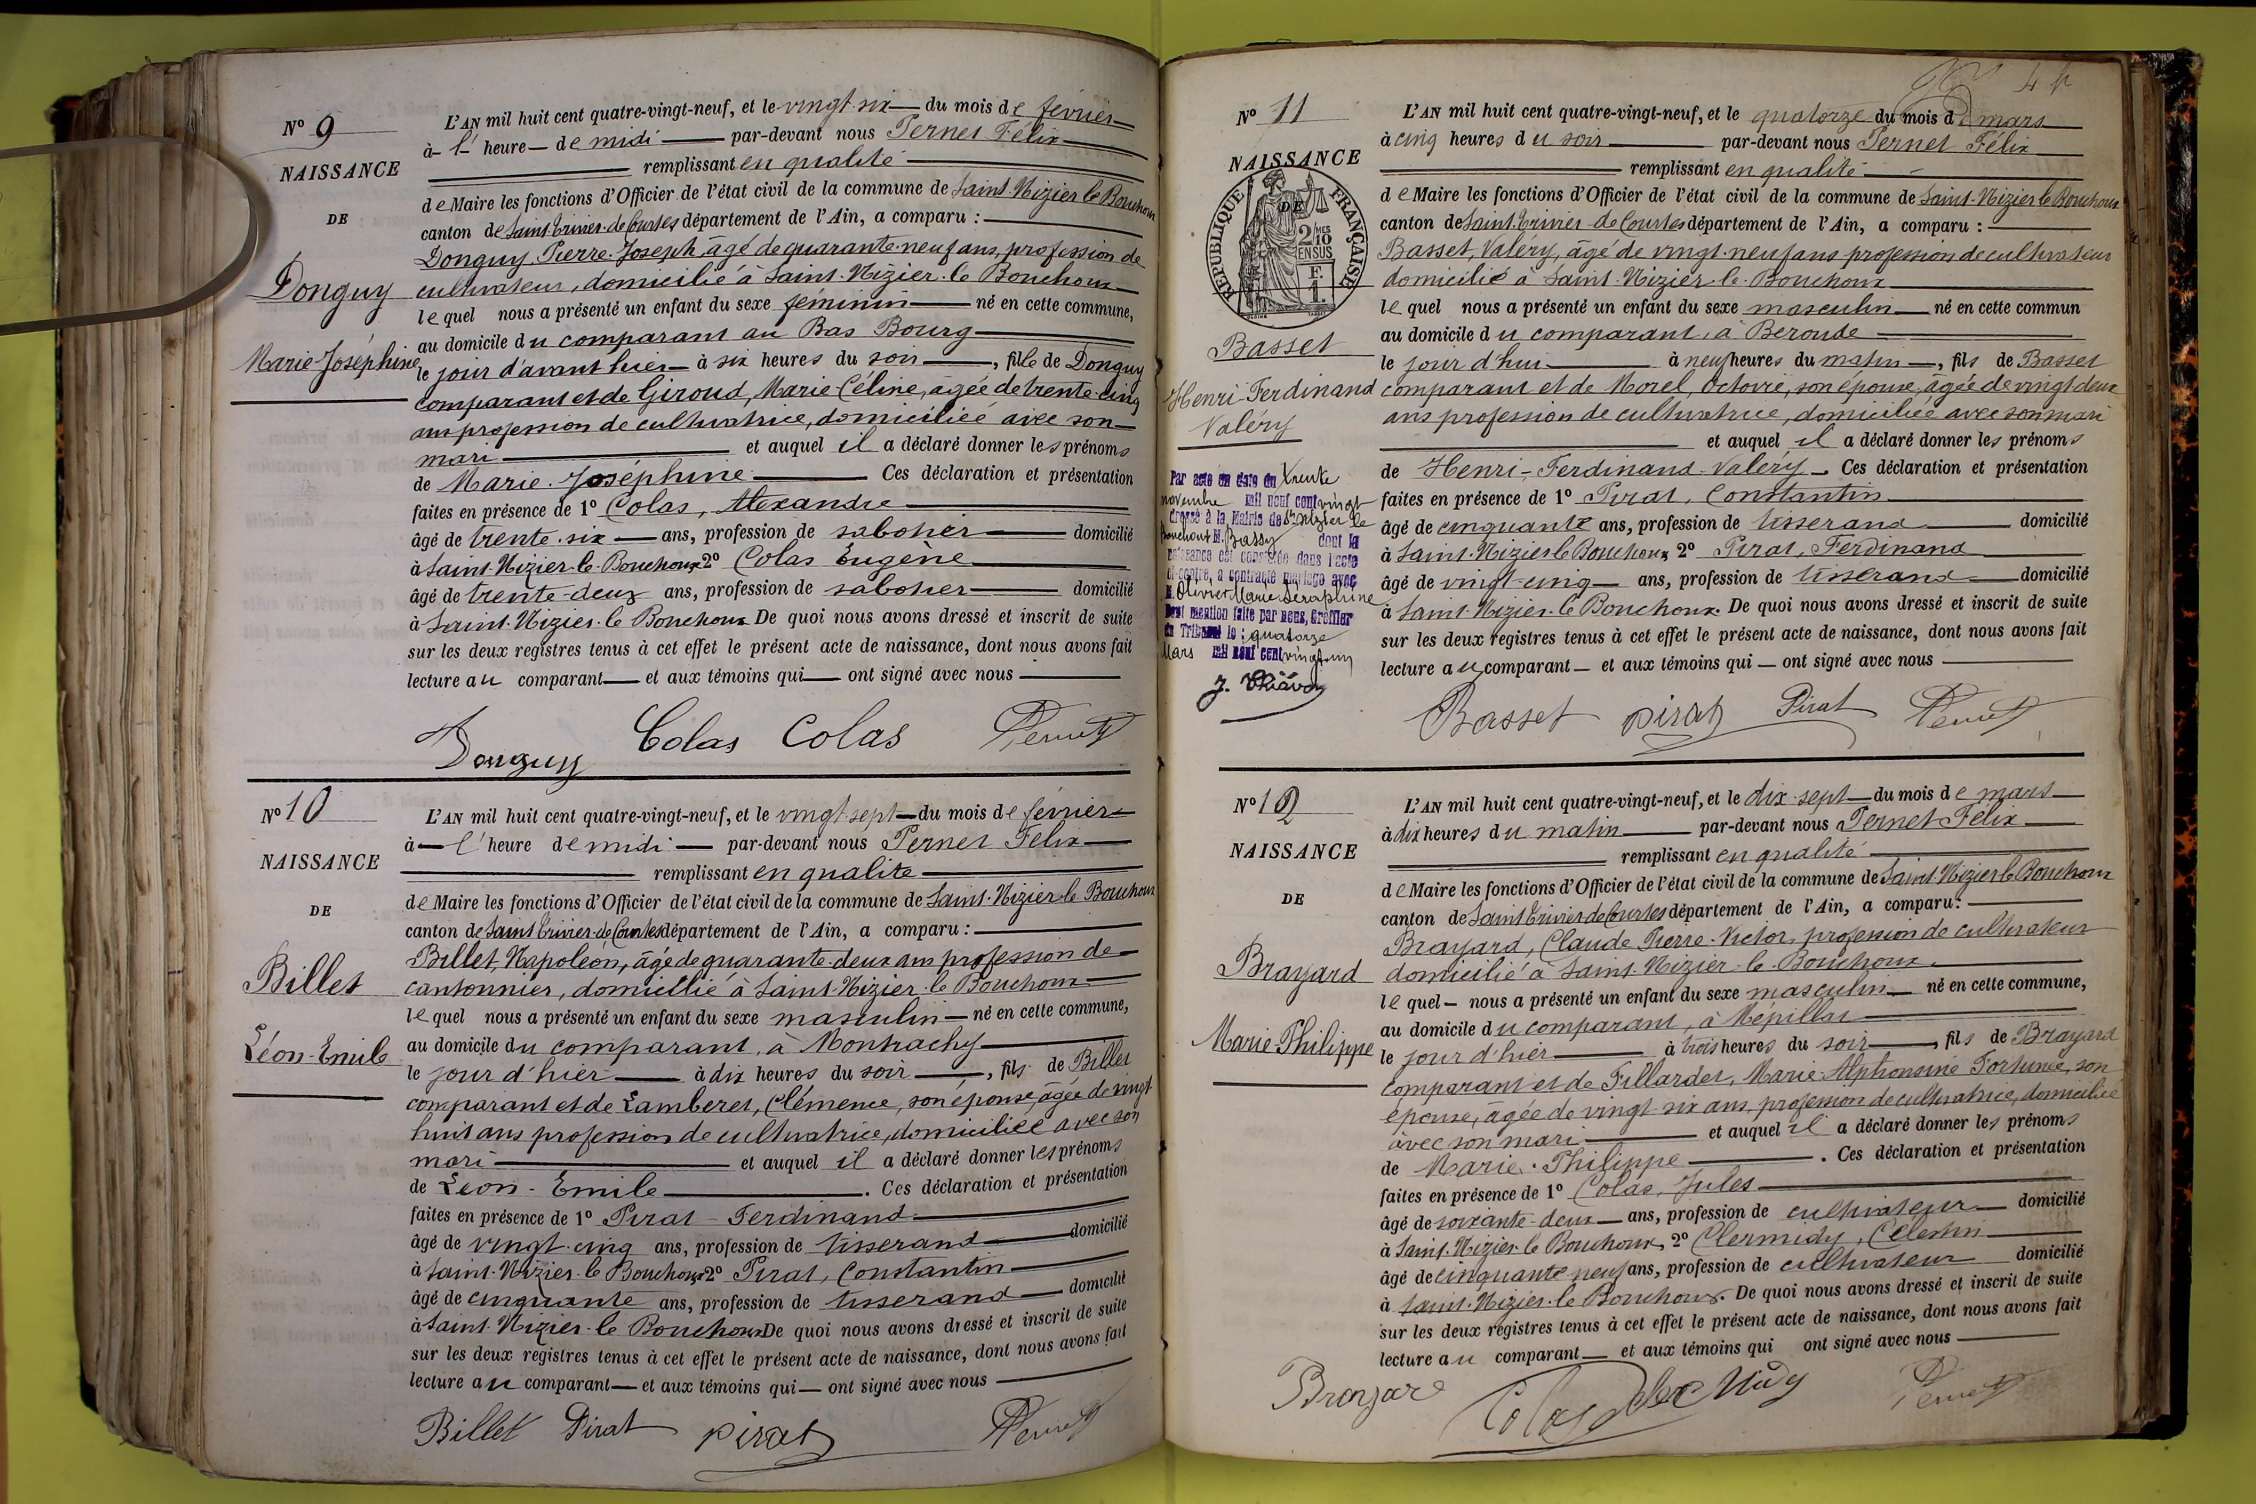 N° 9
NAISSANCE
DE
Donguy
Marie-Joséphine
L'AN mil huit cent quatre-vingt-neuf, et le vingt-six du mois de février
à l' heure de midi par-devant nous Pernet Félix
remplissant en qualité
de Maire les fonctions d'Officier de l'état civil de la commune de Saint-Nizier le Bouchoux
canton de Saint-Trivier-de-Courtes département de l'Ain, a comparu :
Donguy, Pierre-Joseph, âgé de quarante-neuf ans, profession de
cultivateur, domicilié à Saint-Nizier-le-Bouchoux
le quel nous a présenté un enfant du sexe féminin né en cette commune,
au domicile du comparant au Bas Bourg
le jour d'avant hier à six heures du soir, fille de Donguy
comparant et de Giroud, Marie-Céline, âgée de trente-cinq
ans profession de cultivatrice, domiciliée avec son
mari et auquel il a déclaré donner les prénoms
de Marie-Joséphine Ces déclaration et présentation
faites en présence de 1° Colas, Alexandre
âgé de trente-six ans, profession de sabotier domicilié
à Saint-Nizier-le-Bouchoux 2° Colas Eugène
âgé de trente-deux ans, profession de sabotier domicilié
à Saint-Nizier-le-Bouchoux De quoi nous avons dressé et inscrit de suite
sur les deux registres tenus à cet effet le présent acte de naissance, dont nous avons fait
lecture au comparant et aux témoins qui ont signé avec nous
Donguy Colas Colas Pernet
N° 10
NAISSANCE
DE
Billet
Léon-Emile
L'AN mil huit cent quatre-vingt-neuf, et le vingt-sept du mois de février
à l'heure de midi par-devant nous Pernet Félix
remplissant en qualité
de Maire les fonctions d'Officier de l'état civil de la commune de Saint-Nizier-le Bouchoux
canton de Saint Trivier-de-Courtes département de l'Ain, a comparu :
Billet, Napoléon, âgé de quarante-deux ans profession de
cantonnier, domicilié à Saint-Nizier-le Bouchoux
le quel nous a présenté un enfant du sexe masculin né en cette commune,
au domicile du comparant, à Montrachy
le jour d'hier à dix heures du soir, fils de Billet
comparant et de Lamberet, Clémence, son épouse, âgée de vingt
huit ans profession de cultivatrice, domiciliée avec son
mari et auquel il a déclaré donner les prénoms
de Léon-Emile. Ces déclaration et présentation
faites en présence de 1° Pirat-Ferdinand
âgé de vingt-cinq ans, profession de tisserand domicilié
à Saint-Nizier-le Bouchoux 2° Pirat, Constantin
âgé de cinquante ans, profession de tisserand domicilié
à Saint-Nizier-le Bouchoux De quoi nous avons dressé et inscrit de suite
sur les deux registres tenus à cet effet le présent acte de naissance, dont nous avons fait
lecture au comparant et aux témoins qui ont signé avec nous
Billet Pirat pirat Pernet
N° 11
NAISSANCE
DE
RÉPUBLIQUE FRANÇAISE
2 MES
10
EN SUS
F.
1.
Basset
Henri-Ferdinand
Valéry
Par acte en date du trente
novembre mil neuf cent vingt
dressé à la Mairie de St Nizier le
Bouchoux M. Bassy dont la
naissance est constatée dans l'acte
ci-contre, a contracté mariage avec
M. Olivier Marie Séraphine
Dont mention faite par nous, Greffier
du Tribunal le : quatorze
Mars mil neuf cent vingt-un
L'AN mil huit cent quatre-vingt-neuf, et le quatorze du mois de mars
à cinq heures du soir par-devant nous Pernet Félix
remplissant en qualité
de Maire les fonctions d'Officier de l'état civil de la commune de Saint-Nizier le Bouchoux
canton de Saint-Trivier-de-Courtes département de l'Ain, a comparu :
Basset, Valéry, âgé de vingt-neuf ans profession de cultivateur
domicilié à Saint-Nizier-le-Bouchoux
le quel nous a présenté un enfant du sexe masculin né en cette commun
au domicile du comparant, à Beroude
le jour d'hui à neuf heures du matin, fils de Basset
comparant et de Morel, Octavie, son épouse, âgée de vingt-deux
ans profession de cultivatrice, domiciliée avec son mari
et auquel il a déclaré donner les prénoms
de Henri-Ferdinand-Valéry. Ces déclaration et présentation
faites en présence de 1° Pirat, Constantin
âgé de cinquante ans, profession de tisserand domicilié
à Saint-Nizier le Bouchoux 2° Pirat, Ferdinand
âgé de vingt-cinq ans, profession de tisserand domicilié
à Saint-Nizier-le Bouchoux. De quoi nous avons dressé et inscrit de suite
sur les deux registres tenus à cet effet le présent acte de naissance, dont nous avons fait
lecture au comparant et aux témoins qui ont signé avec nous
Basset pirat Pirat Pernet
N° 12
NAISSANCE
DE
Brayard
Marie-Philippe
L'AN mil huit cent quatre-vingt-neuf, et le dix-sept du mois de mars
à dix heures du matin par-devant nous Pernet Félix
remplissant en qualité
de Maire les fonctions d'Officier de l'état civil de la commune de Saint-Nizier le Bouchoux
canton de Saint Trivier de Courtes département de l'Ain, a comparu :
Brayard, Claude Pierre-Victor, profession de cultivateur
domicilié à Saint-Nizier-le-Bouchoux
le quel nous a présenté un enfant du sexe masculin né en cette commune,
au domicile du comparant, à Mépillat
le jour d'hier à trois heures du soir, fils de Brayard
comparant et de Fillardet, Marie-Alphonsine Fortunée, son
épouse, âgée de vingt-six ans, profession de cultivatrice, domiciliée
avec son mari et auquel il a déclaré donner les prénoms
de Marie-Philippe. Ces déclaration et présentation
faites en présence de 1° Colas, Jules
âgé de soixante-deux ans, profession de cultivateur domicilié
à Saint-Nizier-le Bouchoux, 2° Clermidy, Célestin
âgé de cinquante neuf ans, profession de cultivateur domicilié
à Saint-Nizier-le Bouchoux. De quoi nous avons dressé et inscrit de suite
sur les deux registres tenus à cet effet le présent acte de naissance, dont nous avons fait
lecture au comparant et aux témoins qui ont signé avec nous
Colas Clermidy Pernet